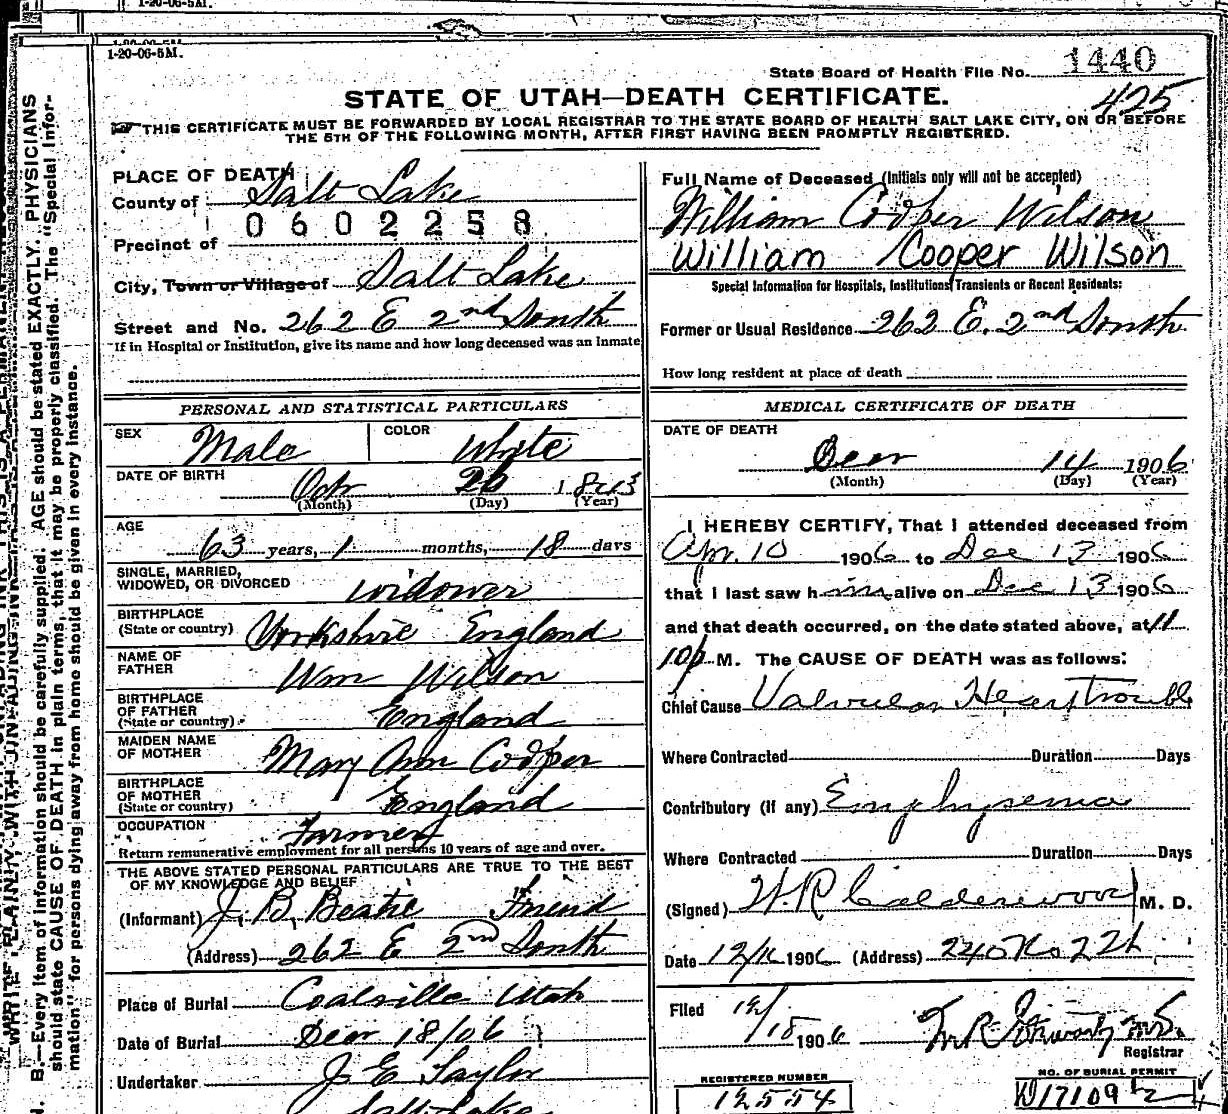 1-20-06-5M.
1-20-06-5M.
State Board of Health File No. 1440
STATE OF UTAH—DEATH CERTIFICATE.
425
THIS CERTIFICATE MUST BE FORWARDED BY LOCAL REGISTRAR TO THE STATE BOARD OF HEALTH SALT LAKE CITY, ON OR BEFORE
THE 5TH OF THE FOLLOWING MONTH, AFTER FIRST HAVING BEEN PROMPTLY REGISTERED.
PLACE OF DEATH
County of Salt Lake
0602258
Precinct of
City, Town or Village of Salt Lake
Street and No. 262 E 2nd South
If in Hospital or Institution, give its name and how long deceased was an Inmate
Full Name of Deceased (Initials only will not be accepted)
William Cooper Wilson
William Cooper Wilson
Special Information for Hospitals, Institutions Transients or Recent Residents:
Former or Usual Residence 262 E. 2nd South
How long resident at place of death
PERSONAL AND STATISTICAL PARTICULARS
SEX Male COLOR White
DATE OF BIRTH Oct 26 1843
(Month) (Day) (Year)
AGE
63 years, 1 months, 18 days
SINGLE, MARRIED,
WIDOWED, OR DIVORCED widower
BIRTHPLACE
(State or country) Yorkshire England
NAME OF
FATHER Wm Wilson
BIRTHPLACE
OF FATHER
(State or country) England
MAIDEN NAME
OF MOTHER Mary Ann Cooper
BIRTHPLACE
OF MOTHER
(State or country) England
OCCUPATION Farmer
Return remunerative employment for all persons 10 years of age and over.
THE ABOVE STATED PERSONAL PARTICULARS ARE TRUE TO THE BEST
OF MY KNOWLEDGE AND BELIEF
(Informant) J. B. Beatie Friend
(Address) 262 E 2nd South
Place of Burial Coalville Utah
Date of Burial Dec 18/06
Undertaker J E Taylor
Salt Lake
MEDICAL CERTIFICATE OF DEATH
DATE OF DEATH
Dec 14 1906
(Month) (Day) (Year)
I HEREBY CERTIFY, That I attended deceased from
Apr. 10 1906 to Dec 13 1906
that I last saw him alive on Dec 13 1906
and that death occurred, on the date stated above, at 11
10 p M. The CAUSE OF DEATH was as follows:
Chief Cause Valvular Heart trouble
Where Contracted Duration Days
Contributory (if any) Emphysema
Where Contracted Duration Days
(Signed) W.R Calderwood M. D.
Date 12/16 1906 (Address) 240 No 22
Filed 12/18 1906
Registrar
REGISTERED NUMBER
12554
NO. OF BURIAL PERMIT
W17109 1/2
B.—Every item of information should be carefully supplied. AGE should be stated EXACTLY. PHYSICIANS
should state CAUSE OF DEATH in plain terms, that it may be properly classified. The "Special Infor-
mation" for persons dying away from home should be given in every instance.
WRITE PLAINLY WITH UNFADING INK THIS IS A PERMANENT